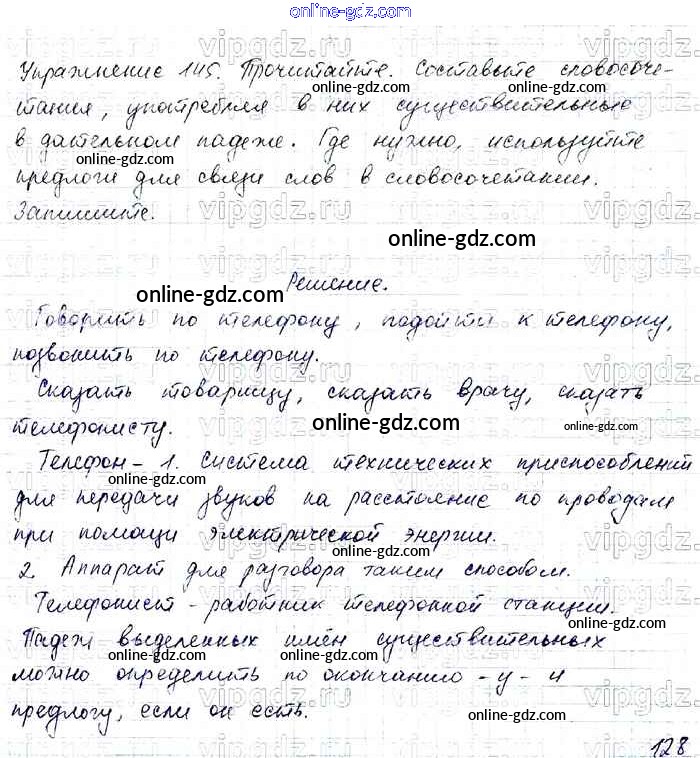 online-gdz.com
Упражнение 145. Прочитайте. Составьте словосоче-
тания, употребляя в них существительные
в дательном падеже. Где нужно, используйте
предлоги для связи слов в словосочетании.
Запишите.
Решение.
Говорить по телефону, подойти к телефону,
позвонить по телефону.
Сказать товарищу, сказать врачу, сказать
телефонисту.
Телефон - 1. Система технических приспособлений
для передачи звуков на расстояние по проводам
при помощи электрической энергии.
2. Аппарат для разговора таким способом.
Телефонист - работник телефонной станции.
Падеж выделенных имён существительных
можно определить по окончанию -у- и
предлогу, если он есть.
128